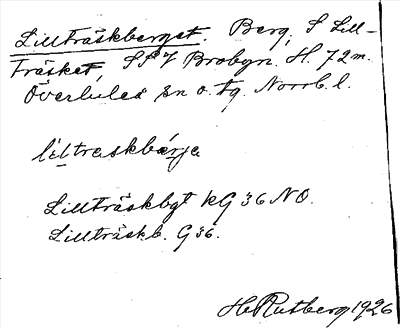 Lillträskberget. Berg, S Lill-
träsket, SSV Brobyn. H. 72 m.
Överluleå sn o. tg. Norrb. l.
lìltraskbárje
Lillträskbgt kG 36 NO.
Lillträskb. G 36.
H. Rutberg 1926